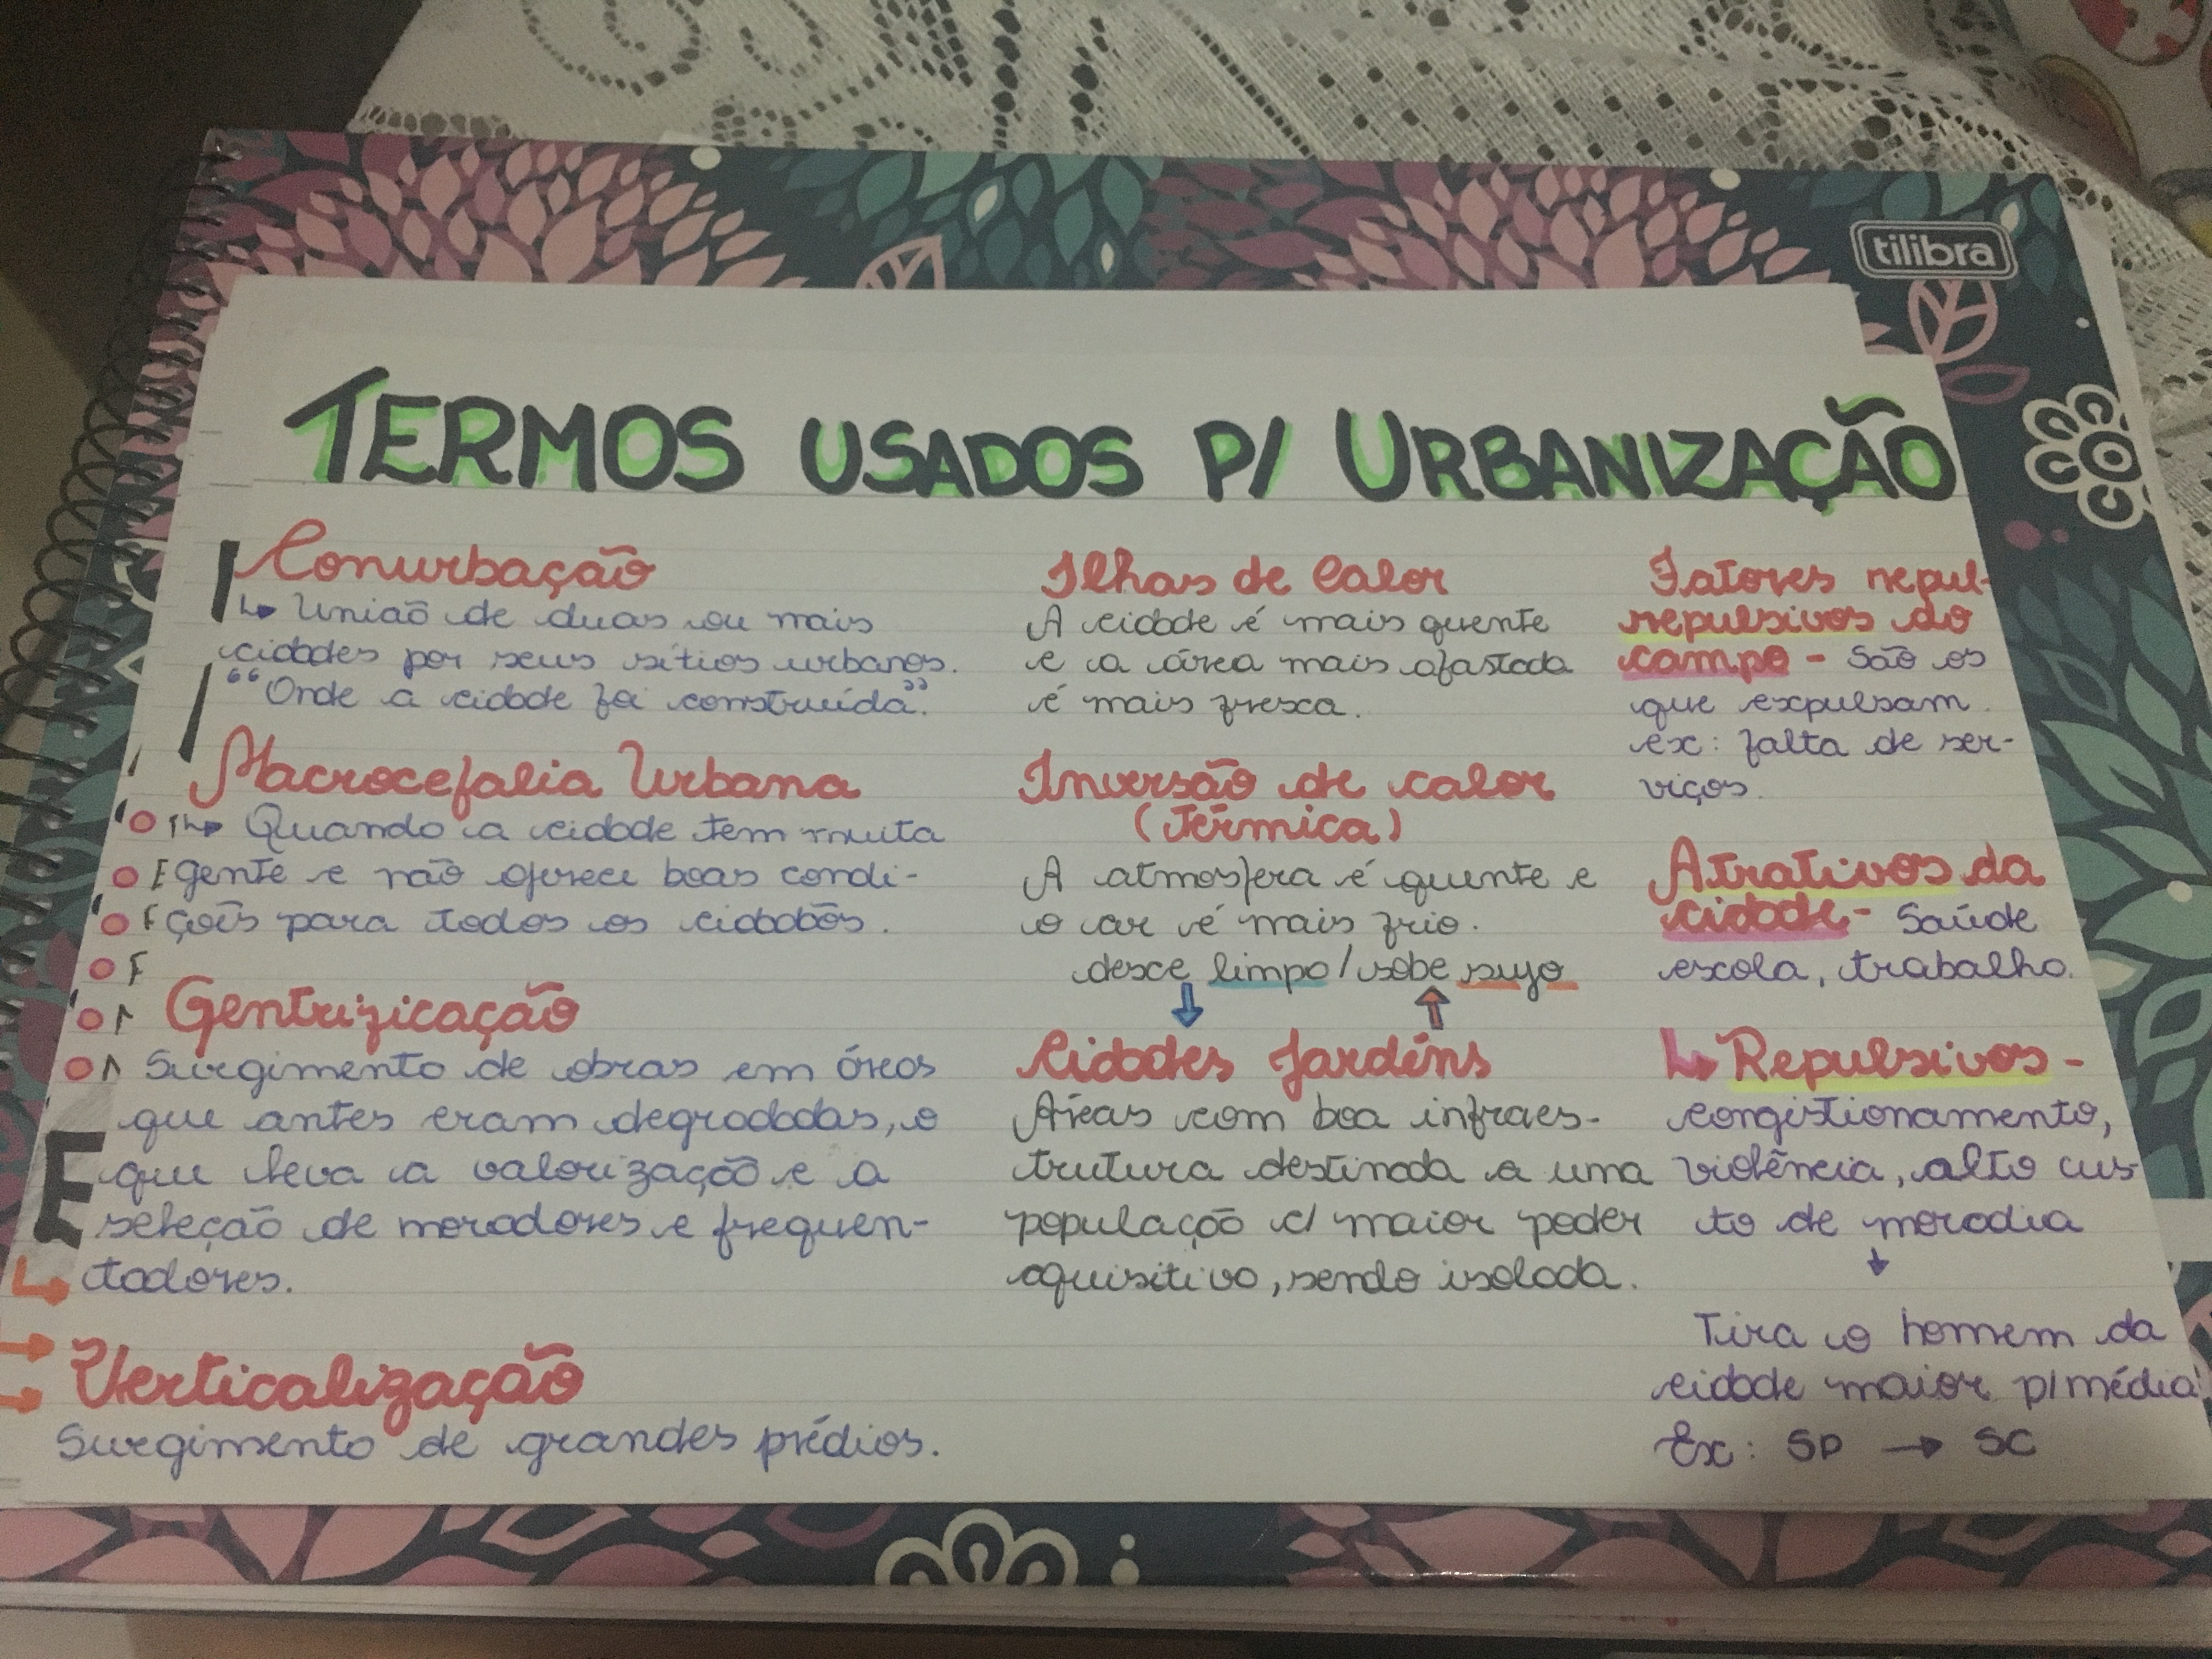 tilibra
TERMOS USADOS P/ URBANIZAÇÃO
Conurbação
↳ União de duas ou mais
cidades por seus sítios urbanos.
"Onde a cidade foi construída".
Macrocefalia Urbana
↳ Quando a cidade tem muita
gente e não oferece boas condi-
ções para todos os cidadãos.
Gentrificação
Surgimento de obras em áreas
que antes eram degradadas, o
que leva a valorização e a
seleção de moradores e frequen-
tadores.
Verticalização
Surgimento de grandes prédios.
Ilhas de Calor
A cidade é mais quente
e a área mais afastada
é mais fresca.
Inversão de calor
(Térmica)
A atmosfera é quente e
o ar é mais frio.
desce limpo / sobe sujo
↓ ↑
Cidades Jardéns
Áreas com boa infraes-
trutura destinada a uma
população c/ maior poder
aquisitivo, sendo isolada.
Fatores repul-
repulsivos do
campo - São os
que expulsam.
ex: falta de ser-
viços.
Atrativos da
cidade - Saúde
escola, trabalho.
↳ Repulsivos -
congistionamento,
violência, alto cus-
to de moradia
↓
Tira o homem da
cidade maior p/ média
Ex: SP → SC